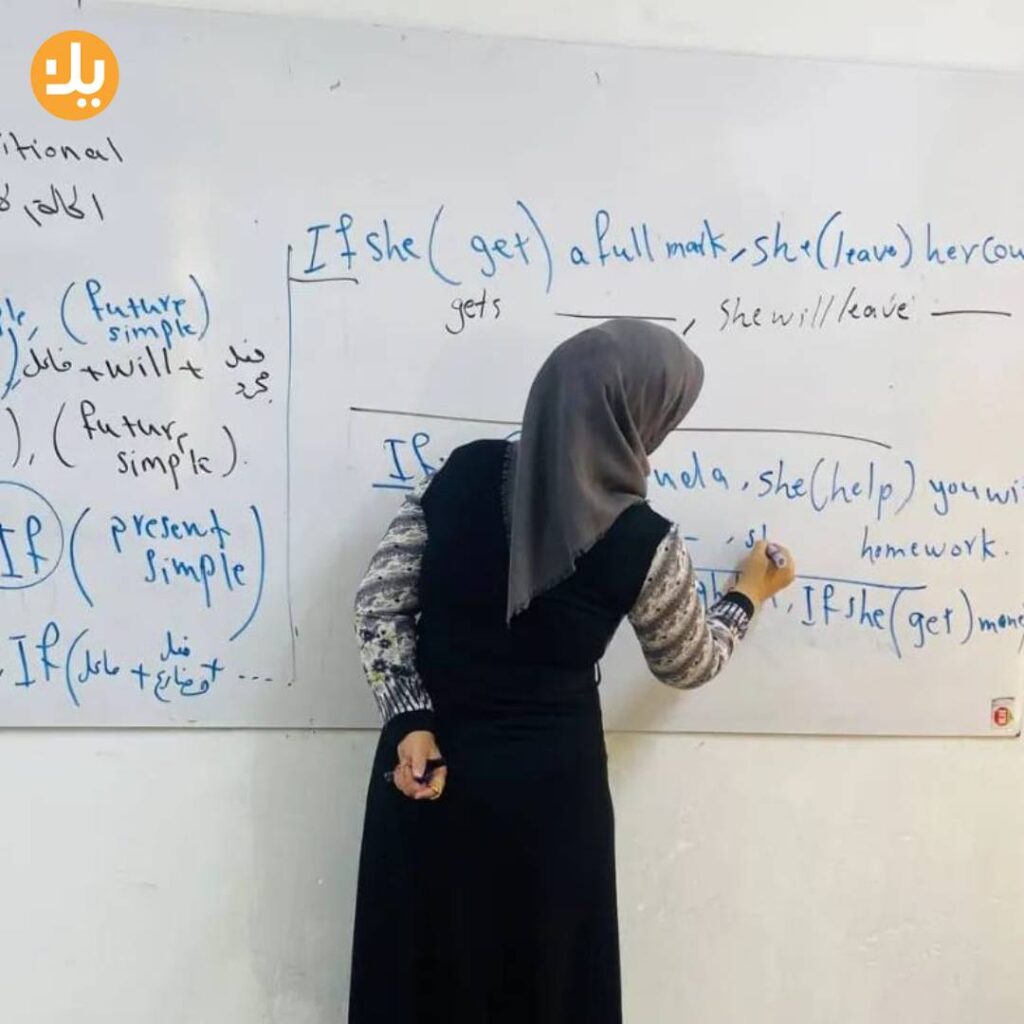 يلا
itional
الحالة
(future
simple)
فاعل + will + فعل
مجرد
), (future
simple).
If (present
simple)
If (فاعل + فعل مضارع + ...
If she (get) a full mark, she (leave) her cou
gets ____, she will leave ____
If nda, she (help) you wi
homework.
, If she (get) money